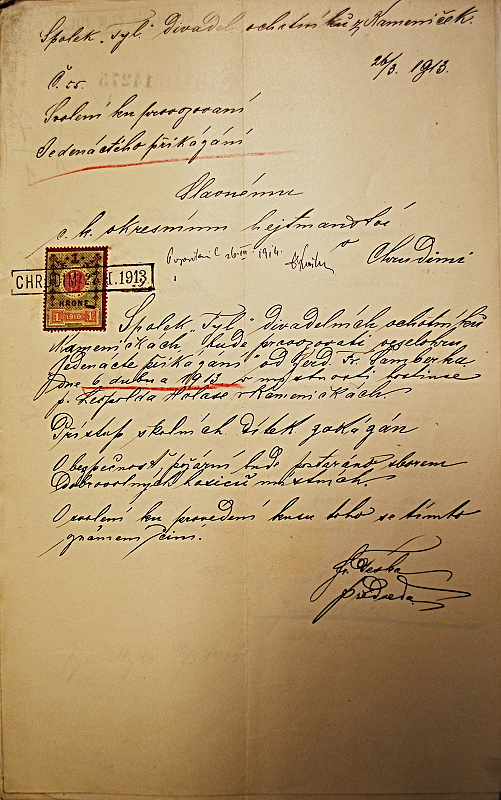 Spolek „Tyl" divadel. ochotníků z Kameniček.
26/3. 1913.
Č. 55.
Svolení ku provozovaní
Jedenáctého přikágání
Slavnému
c. k. okresnímu hejtmanství
v Chrudimi
26/III. 1914.
CHRUDIM 1.1913
1
KRONE
1 1910 1
Spolek „Tyl" divadelních ochotníků
v Kameničkách bude provozovati veselohru
„Jedenácté přikágání" od Ferd. Fr. Šamberka
dne 6. dubna 1913 v místnosti hostince
p. Leopolda Holase v Kameničkách.
Přístup školních dítek gakágán
O begpečnost požární bude postaráno sborem
Dobrovolných hasičů místních.
O svolení ku provedení kusu toho se tímto
gnámení činí.
Fr. Veska
předseda